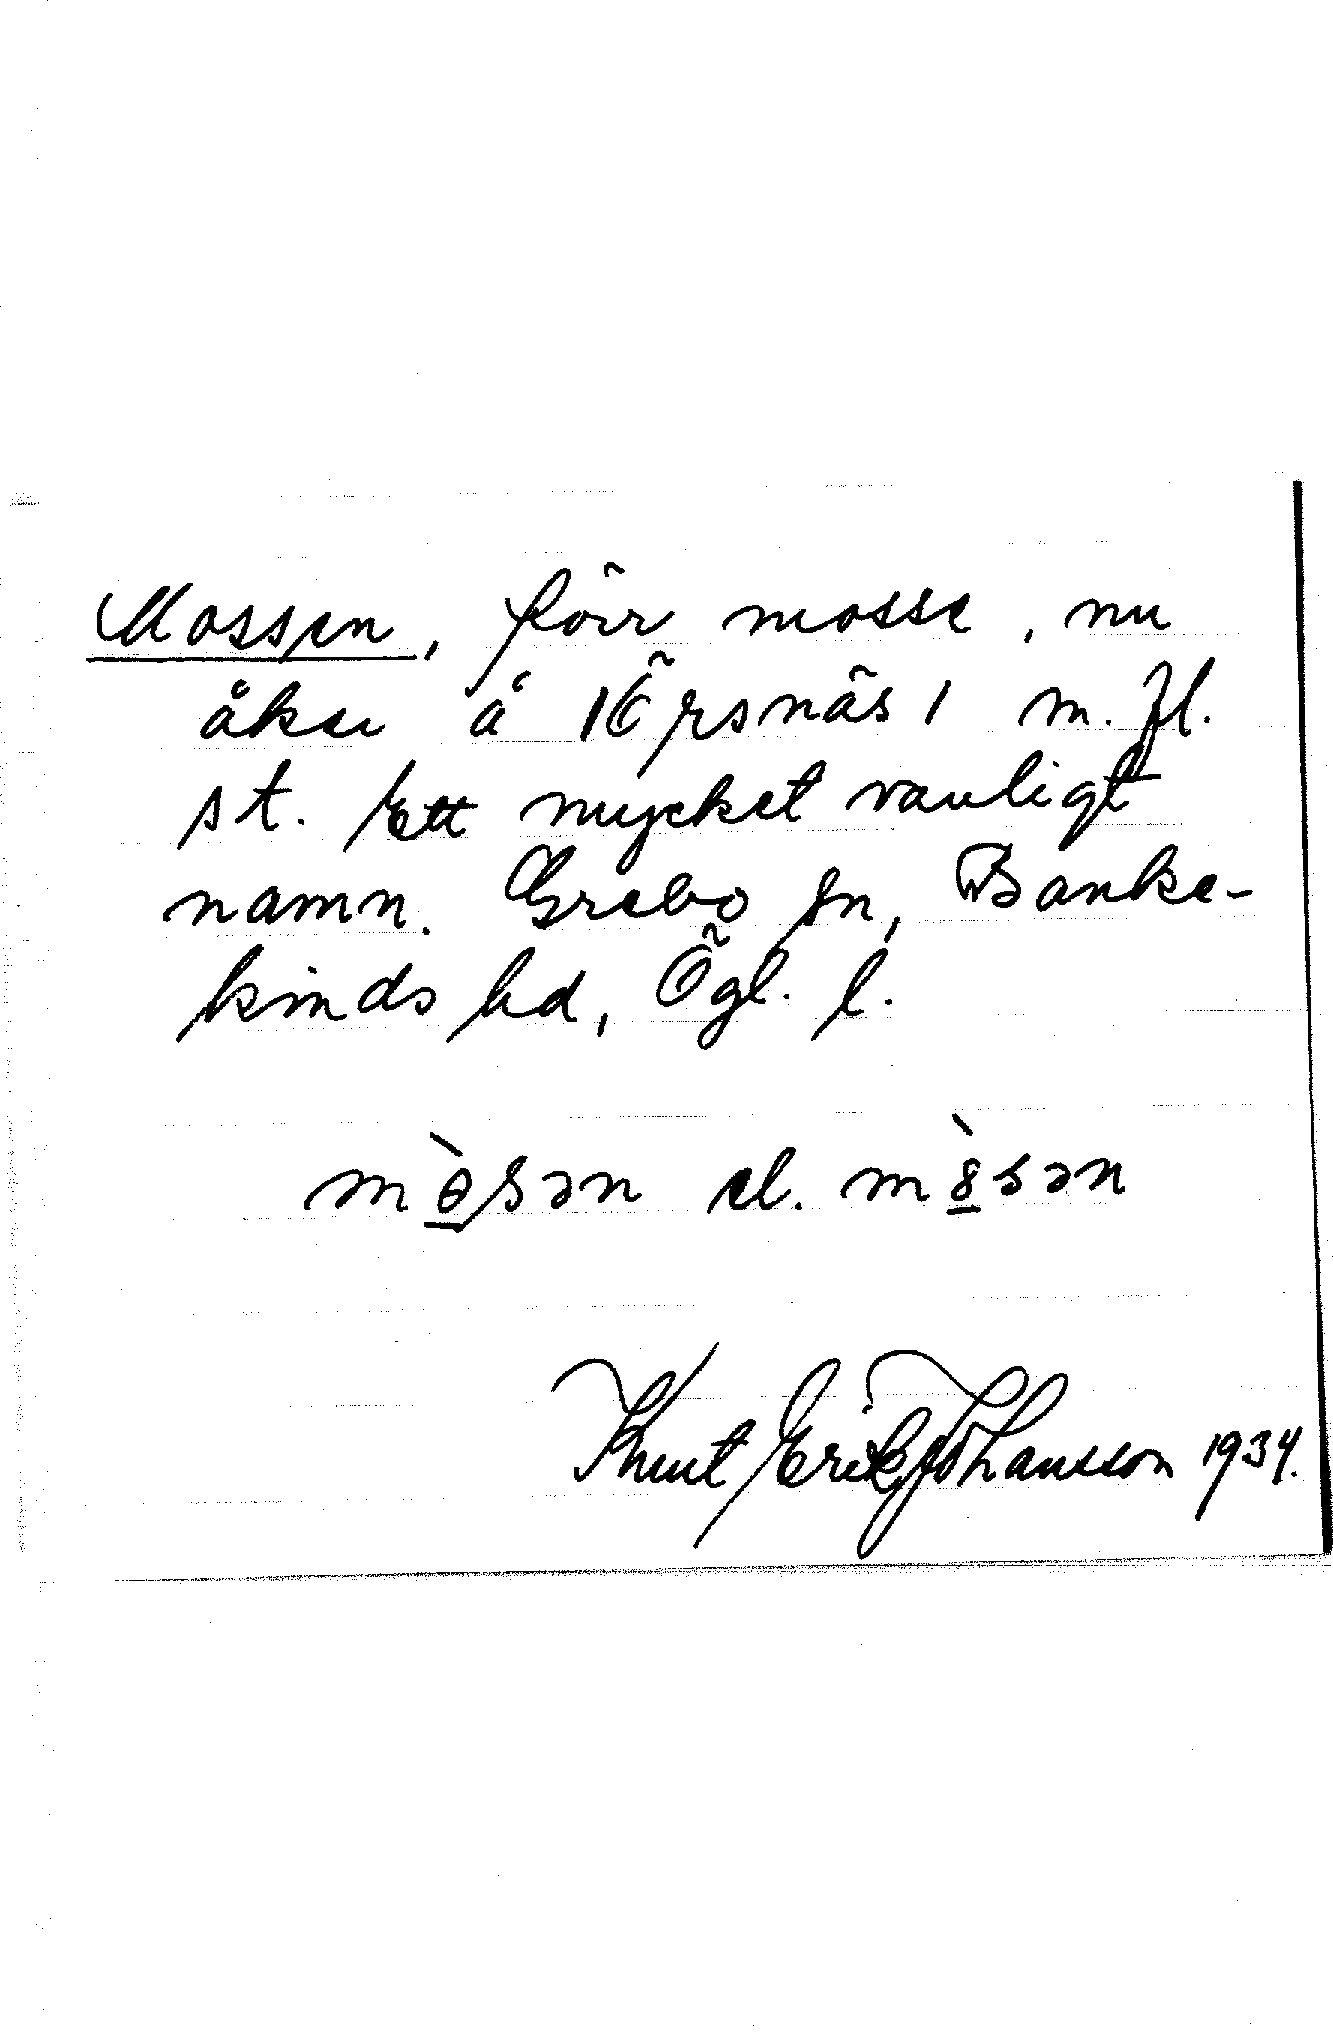 Mossen, förr mosse, nu
åker å 16 Örsnäs 1 m. fl.
st. Ett mycket vanligt
namn. Grebo sn, Banke-
kinds hd, Ögl. l.
mɵ̀sən el. m8̀sən
Knut Erik Johansson 1934.